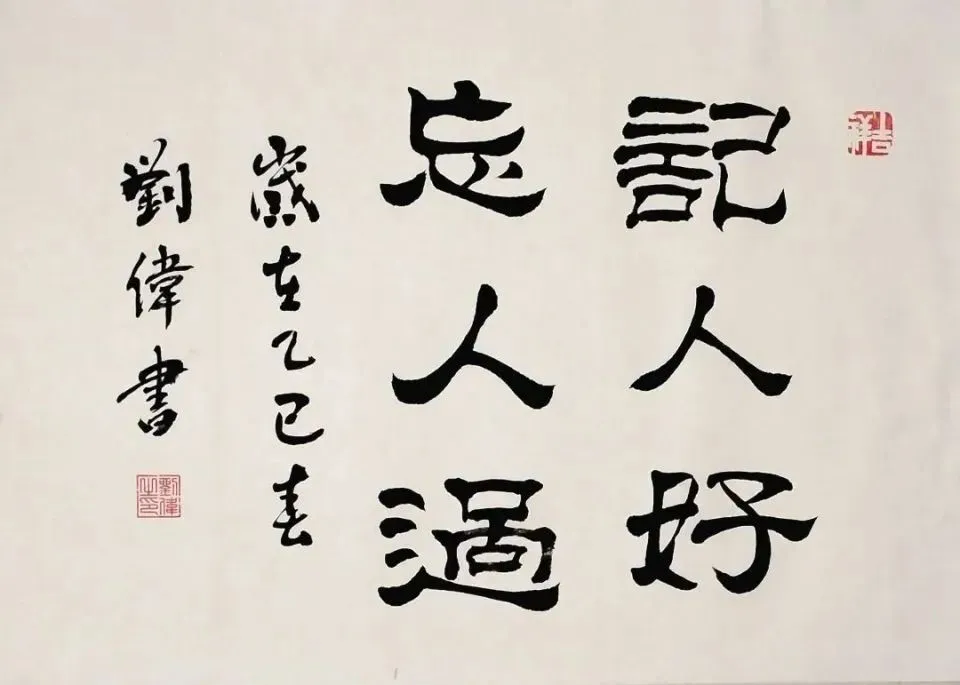 吉祥
記人好
忘人過
歲在乙巳春
劉偉書
劉偉之印